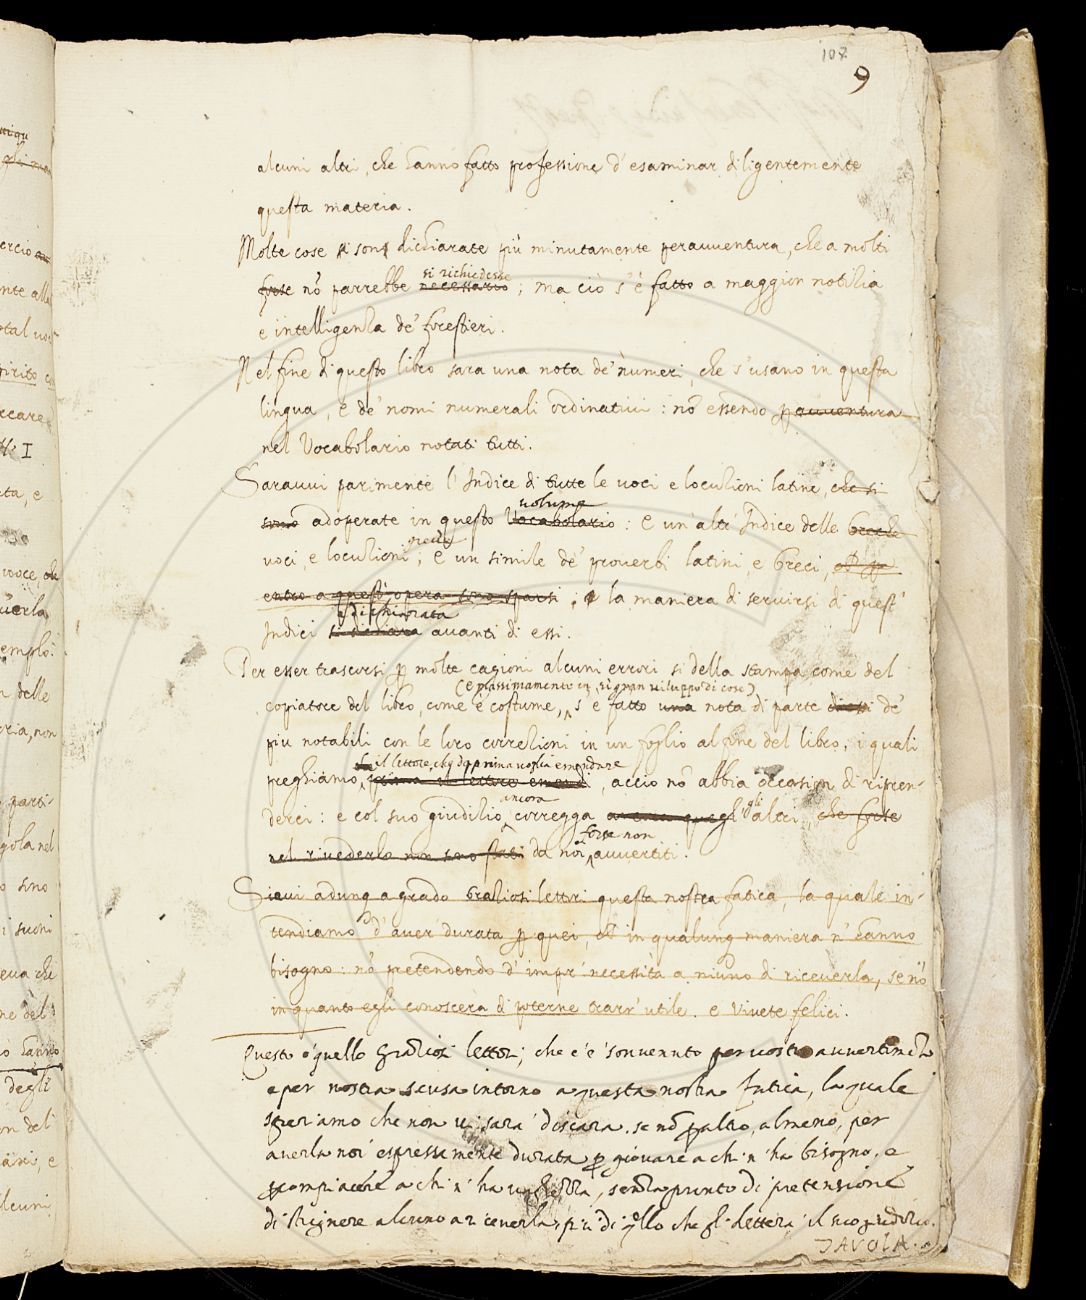 107
9
alcuni altri, che hanno fatto professione d'esaminar diligentemente
questa materia.
Molte cose si son dichiarate più minutamente peravventura, che a molti
si richiedesse
forse nō parrebbe necessario; ma ciò s'è fatto a maggior notizia
e intelligenza de' forestieri.
Nel fine di questo libro sara una nota de' nùmeri, che s'usano in questa
lingua, e de' nomi numerali ordinativi: nō essendo pavventura
nel Vocabolario notati tutti.
Saravvi parimente l'Indice di tutte le voci e locuzioni latine, che si
volume
sono adoperate in questo Vocabolario: E un'altr'Indice delle Grechè
greche
voci, e locuzioni; e un simile de' proverbi latini, e Greci,
entro a quest'opera sono sparsi; e la maniera di servirsi di quest'
è dichiarata
Indici si dichiara avanti di essi.
Per esser trascorsi p molte cagioni alcuni errori si della stampa, come del
(e massimamente in sì gran viluppo di cose)
copiatore del libro, come è costume, s'è fatto una nota di parte de'
piu notabili con le loro correzioni in un foglio al fine del libro, i quali
il lettore, che da prima voglia emendare
preghiamo, prima il lettore emendi, acciò nō abbia occasion di ripren-
ancora gli
derci: e col suo giudizio corregga ancora quegl'altri, che forse
forse non
nel rivederlo non sono stati da noi avvertiti.
Sievi adunq a grado Graziosi lettori questa nostra fatica, la quale in-
tendiamo d'aver durata p quei, ch in qualunq maniera n'hanno
bisogno: nō pretendendo d'impor necessità a niuno di riceverla, se nō
inquanto egli conoscerà di poterne trarr'utile. e Vivete felici.
Questo è quello Graziosi lettori, che c'è sovvenuto per vostro avvertimēto
e per nostra scusa intorno a questa nostra fatica, la quale
speriamo che non vi sarà discara, se nō p altro, almeno, per
averla noi espressamente durata p giovare a chi n'ha bisogno, e
compiacere a chi n'ha vaghezza, senza punto di pretensione
di strignere alcuno a riceverla, più di qllo che gli detterà il suo giudizio.
TAVOLA.